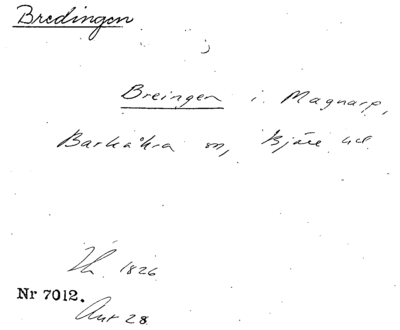 Bredingen
Breingen i Magnarp,
Barkåkra sn, Bjäre hd.
1826
Nr 7012.
28